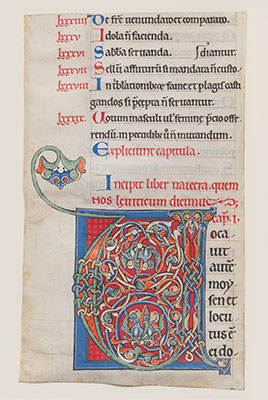 lxxxiiii De frē uenundato et comparato.
lxxxv Idola ñ facienda.
lxxxvi Sabbīa seruanda. ſ diantur.
lxxxvii Bellū affuturū si mandata ñ custo
lxxxviii In tribulationibꝰ fame et plagis casti
gandos si p̄cepta ñ seruantur.
lxxxix Uotum masculi ul' femine p̄cio offe
rendū. in pecudibꝰ ū ñ mutandum.
Expliciunt capitula.
Incipit liber uaiecra. quem
nos leuiticum dicimus
Cap. i.
oca
uit
autē
moy
sen et
locu
tus ē
ei do